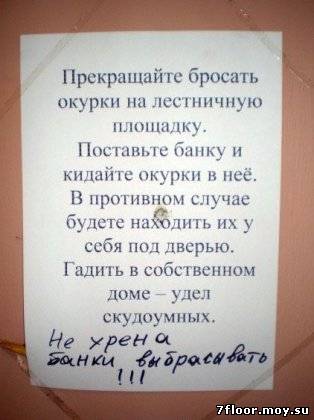 Прекращайте бросать
окурки на лестничную
площадку.
Поставьте банку и
кидайте окурки в неё.
В противном случае
будете находить их у
себя под дверью.
Гадить в собственном
доме – удел
скудоумных.
Не хрена
банки выбрасывать
!!!
7floor.moy.su